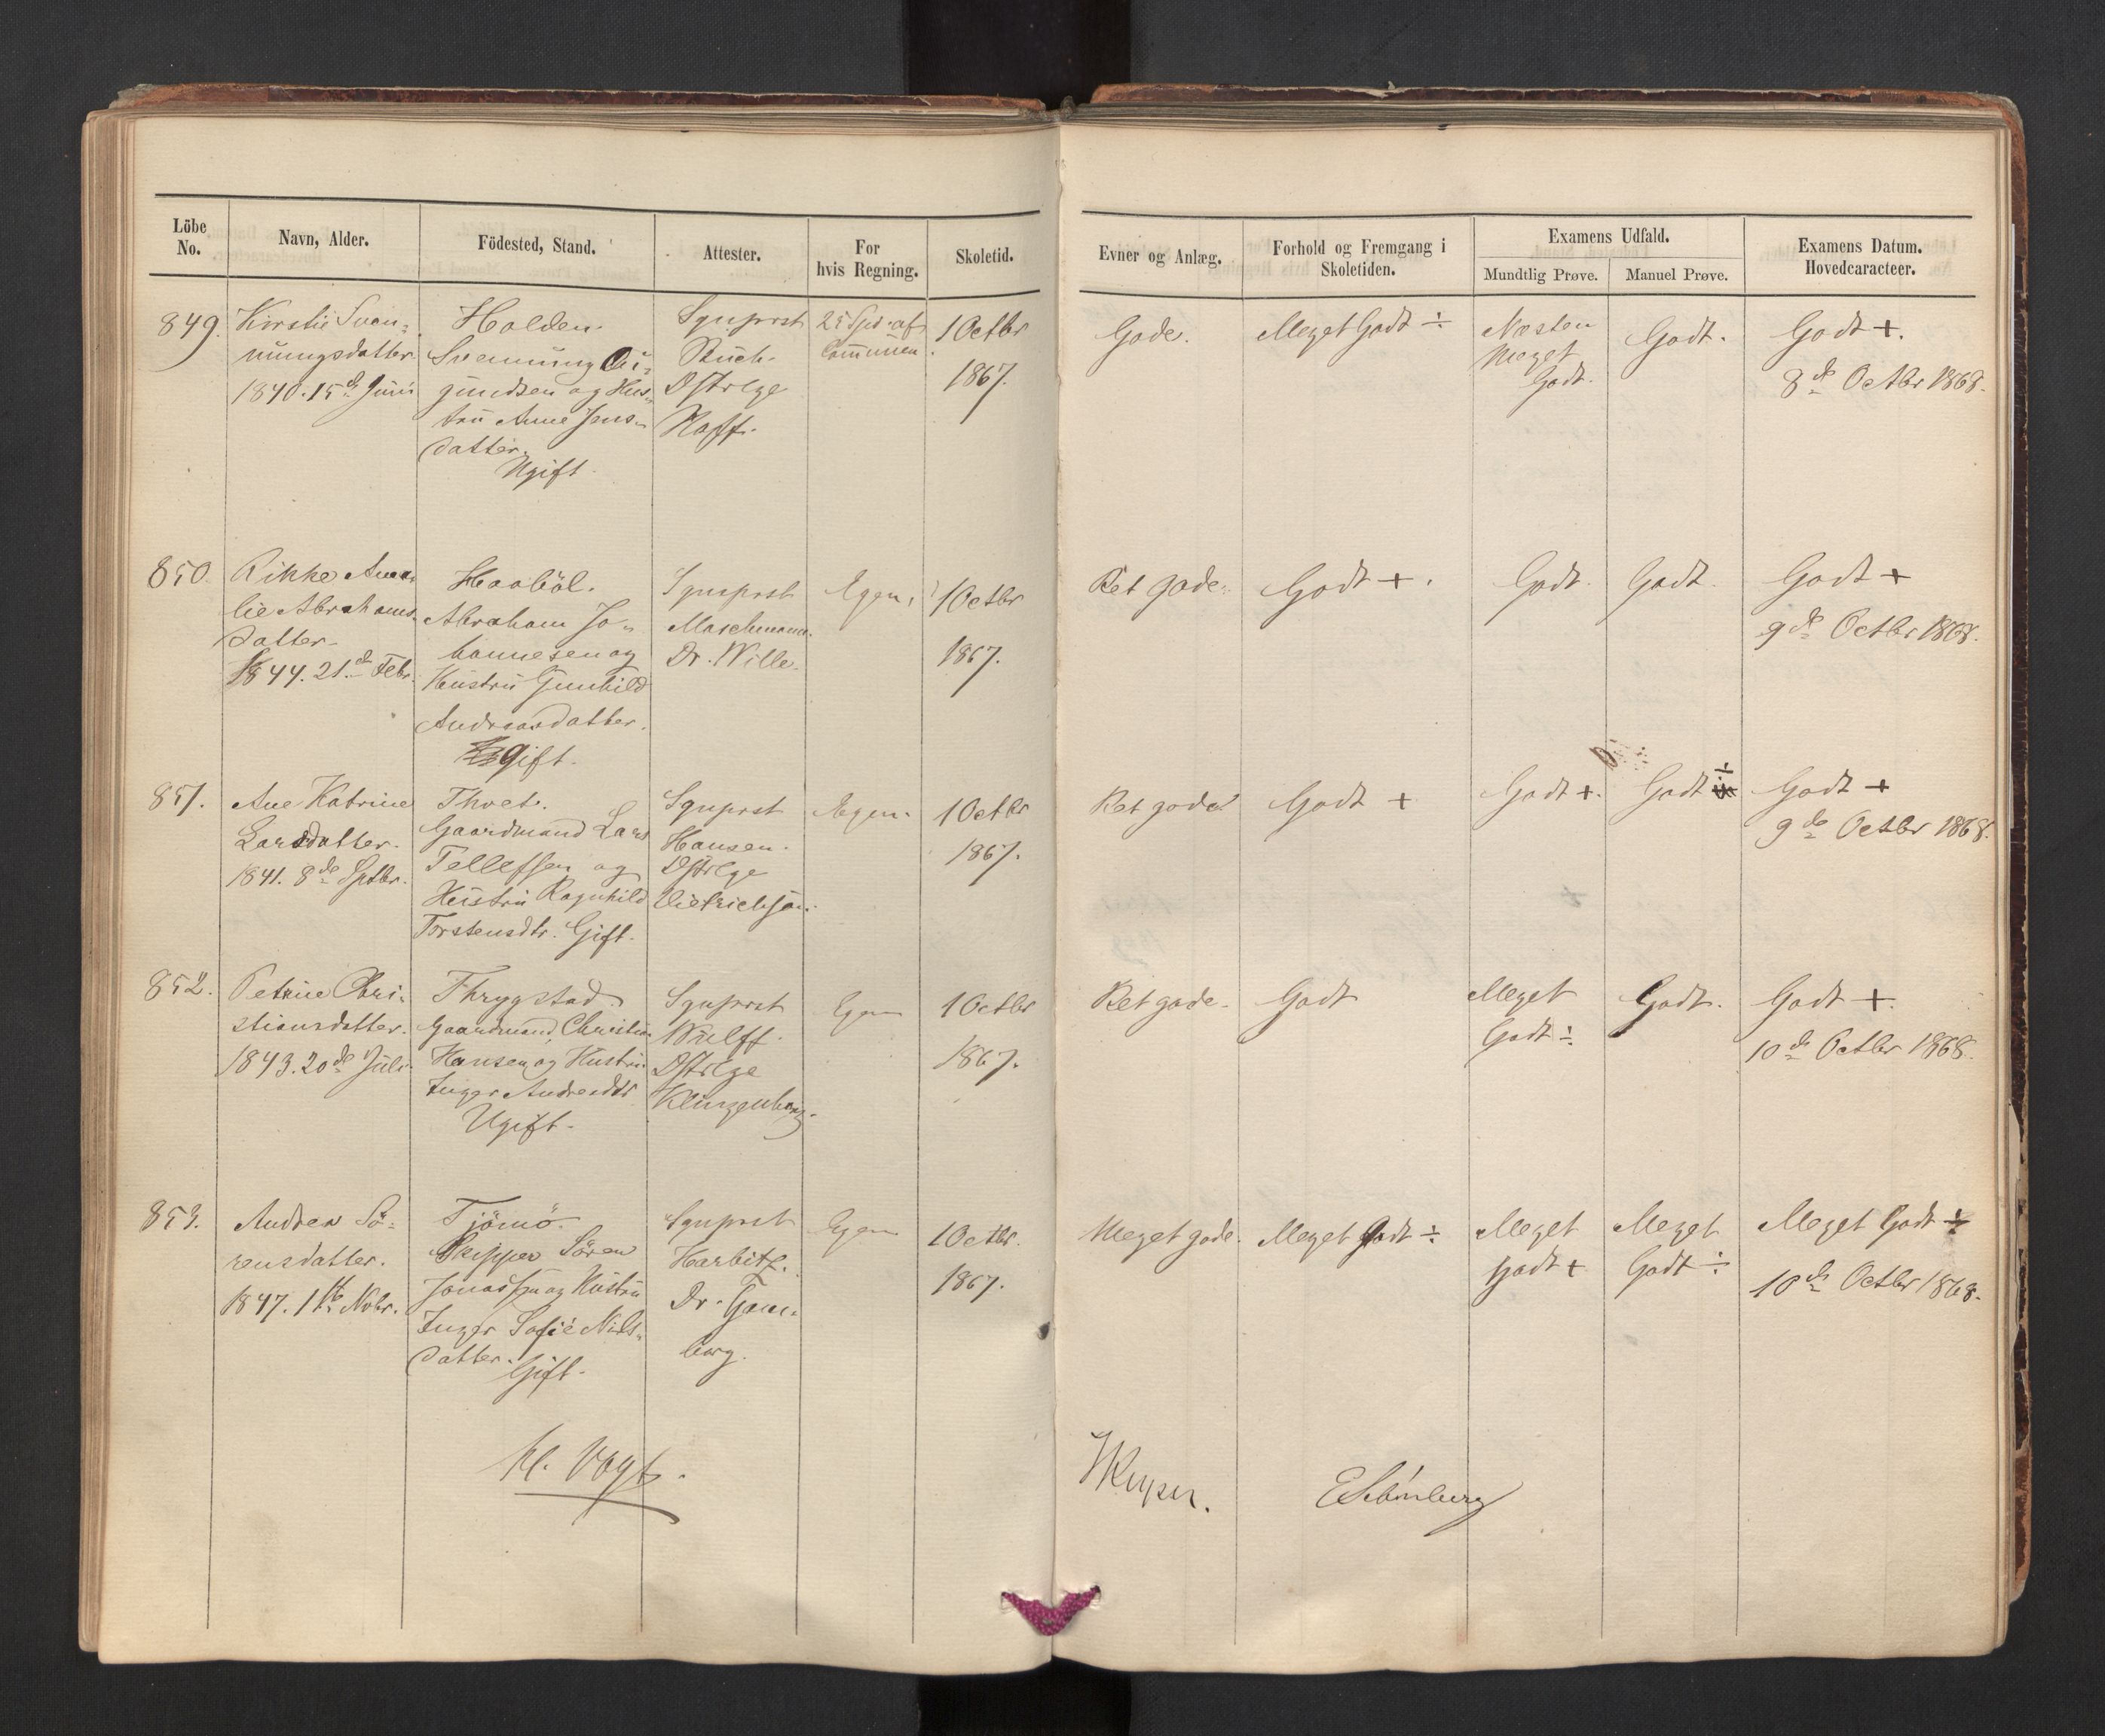 Löbe No.
Navn, Alder.
Födested, Stand.
Attester.
For hvis Regning.
Skoletid.
Evner og Anlæg.
Forhold og Fremgang i Skoletiden.
Examens Udfald.
Mundtlig Prøve.
Manuel Prøve.
Examens Datum. Hovedcaracteer.
849.
Kirstie Sven=
nungsdatter
1840. 15de Juni
Holden.
Svennung
gundsen og Hus=
tru Anne Jens=
datter.
Ugift.
Sgnprst
Buch.
Dstrlge
Hoff.
25 Spd. af
Communen.
1 Octbr
1867.
Gode.
Meget Godt ÷
Næsten
Meget
Godt.
Godt.
Godt +.
8de Octbr 1868.
850.
Rikke Ama=
lie Abrahams=
datter.
1844. 21de Febr.
Haabøl.
Abraham Jo=
hannesen og
Hustru Gunhild
Andreasdatter.
gift.
Sgnprst
Maschmann.
Dr. Wille.
Egen.
1 Octbr
1867.
Ret gode.
Godt +.
Godt.
Godt.
Godt +
9de Octbr 1868.
851.
Ane Katrine
Larsdatter.
1841. 8de Sptbr.
Thvet.
Gaardmand Lars
Tellefsen og
Hustru Ragnhild
Torstensdtr. Gift.
Sgnprst
Hansen.
Dstrlge
Dietrichson.
Egen.
1 Octbr
1867.
Ret gode
Godt +
Godt +.
Godt ÷
Godt +
9de Octbr 1868.
852.
Petrine Chri=
stiansdatter.
1843. 20de Juli
Thrygstad.
Gaardmand Christian
Hansen og Hustru
Inger Andersdtr
Ugift.
Sgnprst
Wulff.
Dstrlge
Klingenberg.
Egen
1 Octbr
1867.
Ret gode.
Godt
Meget
Godt ÷
Godt.
Godt +.
10de Octbr 1868.
853.
Andrea Sö=
rensdatter.
1847. 1ste Nvbr.
Tjömö.
Skipper Sören
Jonassen og Hustru
Inger Sofie Nils=
datter.
Gift.
Sgnprst
Harbitz.
Dr. Gam=
borg.
Egen
1 Octbr.
1867.
Meget gode.
Meget Godt ÷
Meget
Godt +
Meget
Godt ÷
Meget Godt ÷
10de Octbr 1868.
Vogt.
E Schönberg